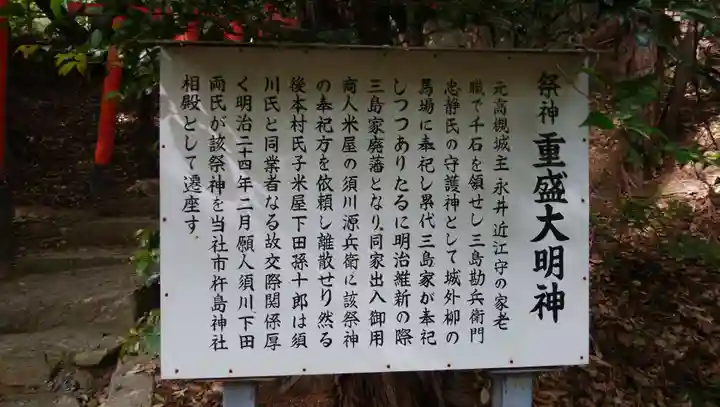 祭神 重盛大明神
元高槻城主永井近江守の家老
職で千石を領せし三島勘兵衛門
忠静氏の守護神として城外柳の
馬場に奉祀し累代三島家が奉祀
しつつありたるに明治維新の際
三島家廃藩となり。同家出入御用
商人米屋の須川源兵衛に該祭神
の奉祀方を依頼し離散せり然る
後本村氏子米屋下田孫十郎は須
川氏と同業者なる故交際関係厚
く明治二十四年二月願人須川、下田
両氏が該祭神を当社市杵島神社
相殿として遷座す。